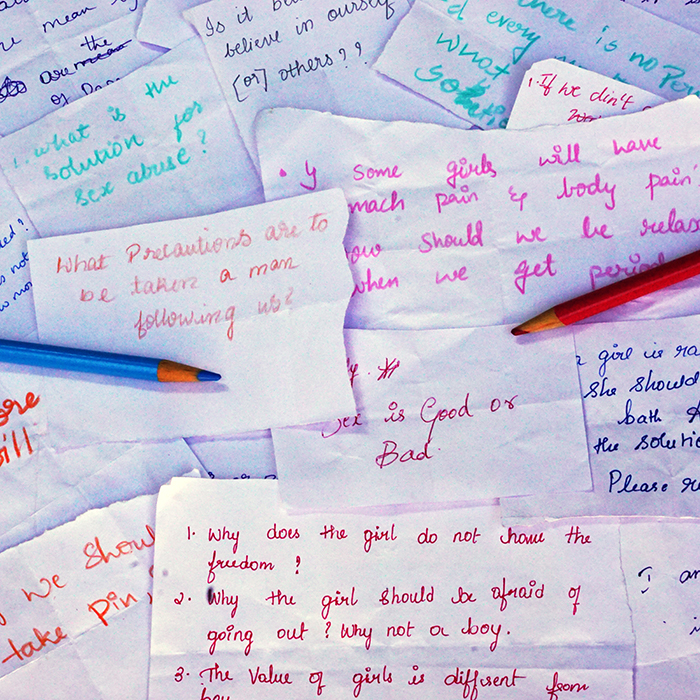 Is it
believe in ourself
[or] others??
there is no
d every
what
Solutio
1. If we din't
mean
are
the
of
1. what is the
solution for
sex abuse?
• y some girls will have
mach pain & body pain
ow should we be relax
when we get period
What Precautions are to
be taken a man
following us?
Sex is Good or
Bad.
girl is ra
She should
bath
the solutio
Please re
ore
ill
we shou
take pin
1. Why does the girl do not have the
freedom?
2. Why the girl should be afraid of
going out? Why not a boy.
3. The Value of girls is different from
boy